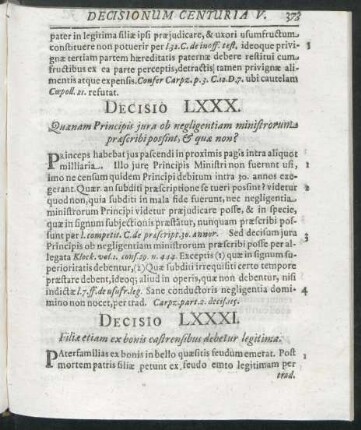 DECISIONUM CENTURIA V. 373
pater in legitima filiæ ipsi præjudicare, & uxori usumfructum
constituere non potuerit per l. 32. C. de inoff. test, ideoque privi-
gnæ tertiam partem hæreditatis paternæ debere restitui cum
fructibus ex ea parte perceptis, detractis tamen privignæ ali-
mentis atque expensis. Confer Carpz. p. 3. C. 12. D. 7. ubi cautelam
Capoll. 21. refutat.
DECISIO LXXX.
Quænam Principis jura ob negligentiam ministrorum
præscribi possint, & quæ non?
PRinceps habebat jus pascendi in proximis pagis intra aliquot 1
milliaria. Illo jure Principis Ministri non fuerunt usi,
imo ne censum quidem Principi debitum intra 30. annos exe-
gerant. Quær. an subditi præscriptione se tueri possint? videtur
quod non, quia subditi in mala fide fuerunt, nec negligentia
ministrorum Principi videtur præjudicare posse, & in specie,
quæ in signum subjectionis præstātur, nunquam præscribi pos-
sunt per l. competit. C. de præscript. 30. annor. Sed decisum jura 3
Principis ob negligentiam ministrorum præscribi posse per al-
legata Klock. vol. 1. cons. 29. n. 424. Exceptis (1) quæ in signum su-
perioritatis debentur, (2) Quæ subditi irrequisiti certo tempore
præstare debent, ideoq; aliud in operis, quæ non debentur, nisi
indictæ l. 7. ff. de usufr. leg. Sane conductoris negligentia domi- 4
mino non nocet, per trad. Carpz. part. 2. decis. 115.
DECISIO LXXXI.
Filiæ etiam ex bonis castrensibus debetur legitima.
PAterfamilias ex bonis in bello quæsitis feudum emerat. Post 1
mortem patris filiæ petunt ex, feudo emto legitimam per
trad.